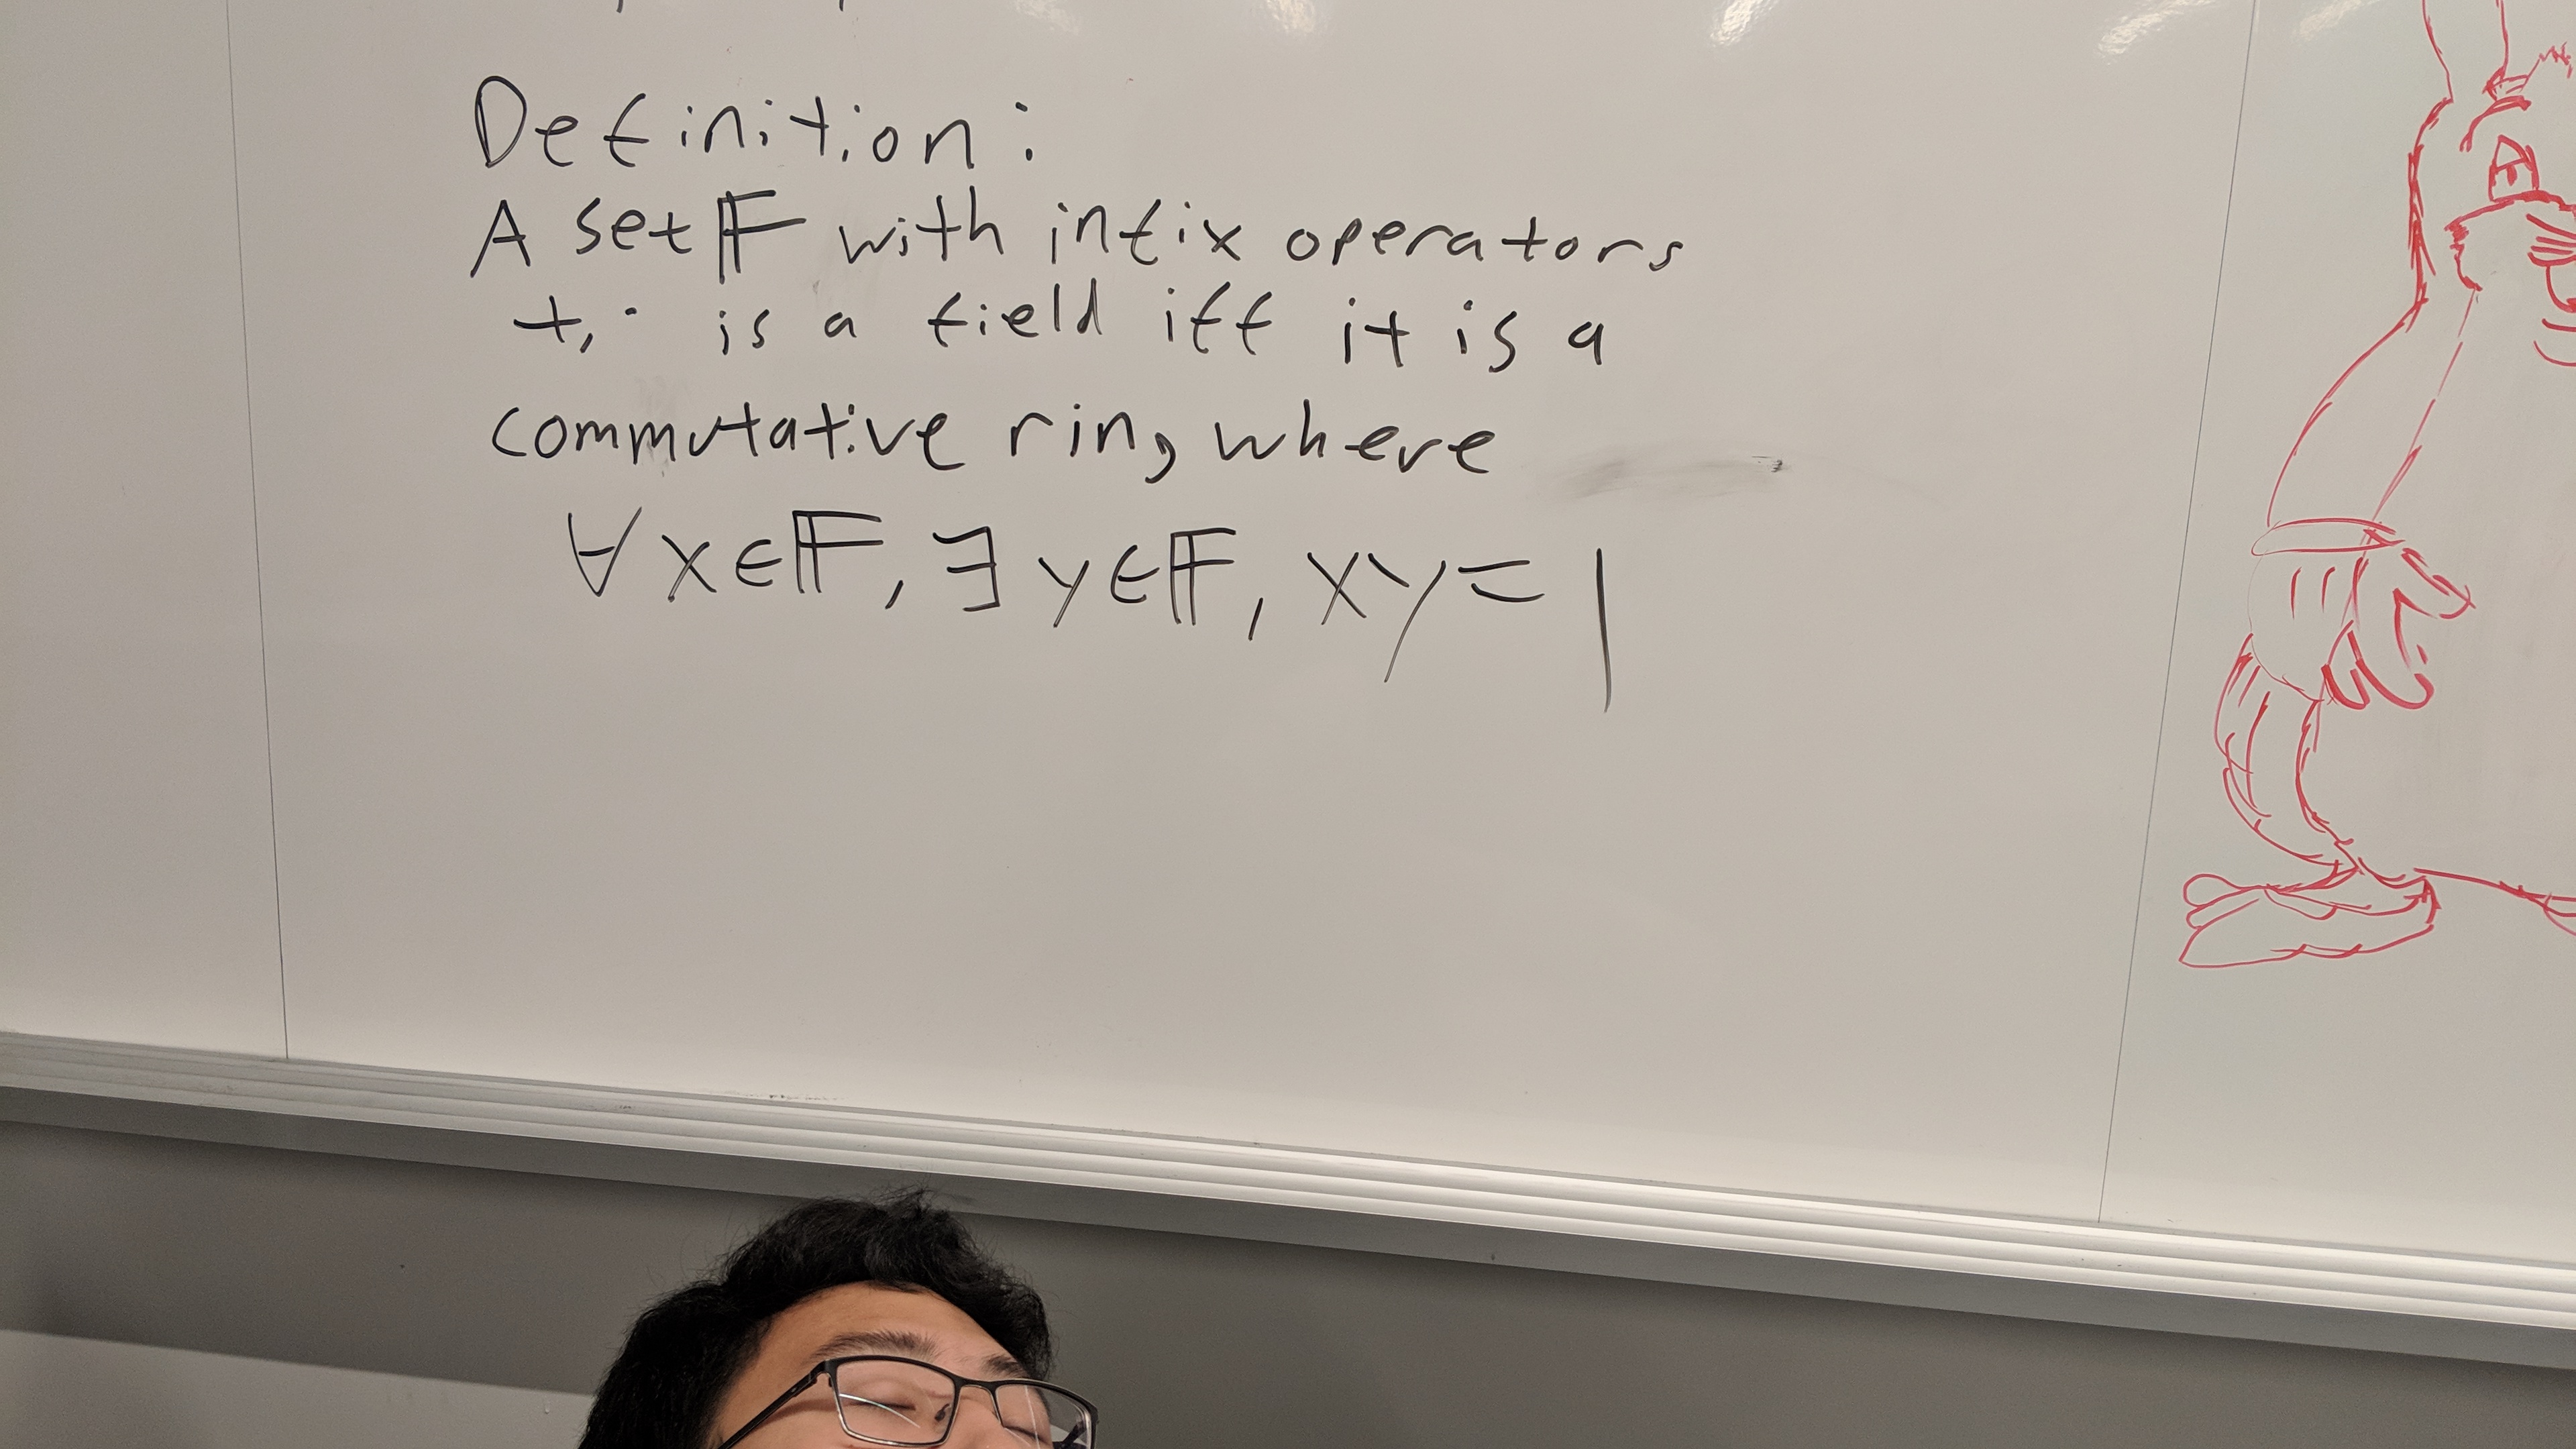 Definition:
A set 𝔽 with infix operators
+, · is a field iff it is a
commutative ring where
∀ x ∈ 𝔽, ∃ y ∈ 𝔽, xy = 1